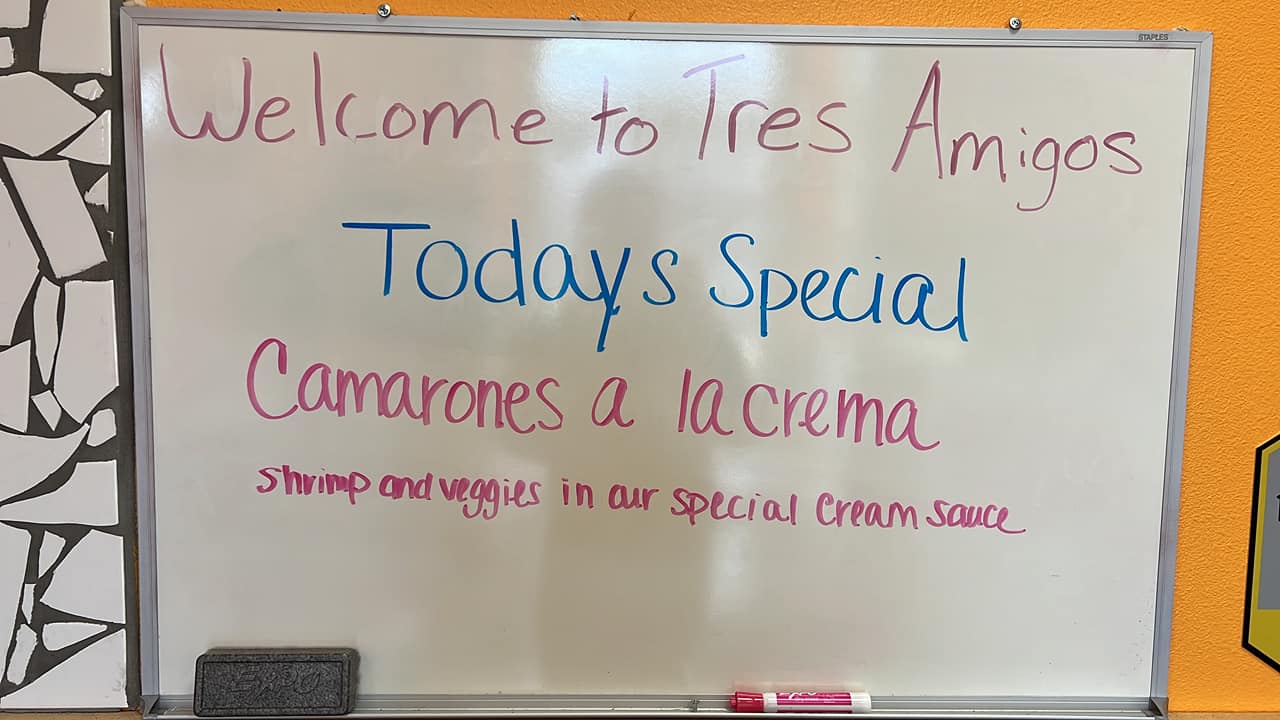 STAPLES
Welcome to Tres Amigos
Todays Special
Camarones a la crema
shrimp and veggies in our special cream sauce
EXPO
EXPO